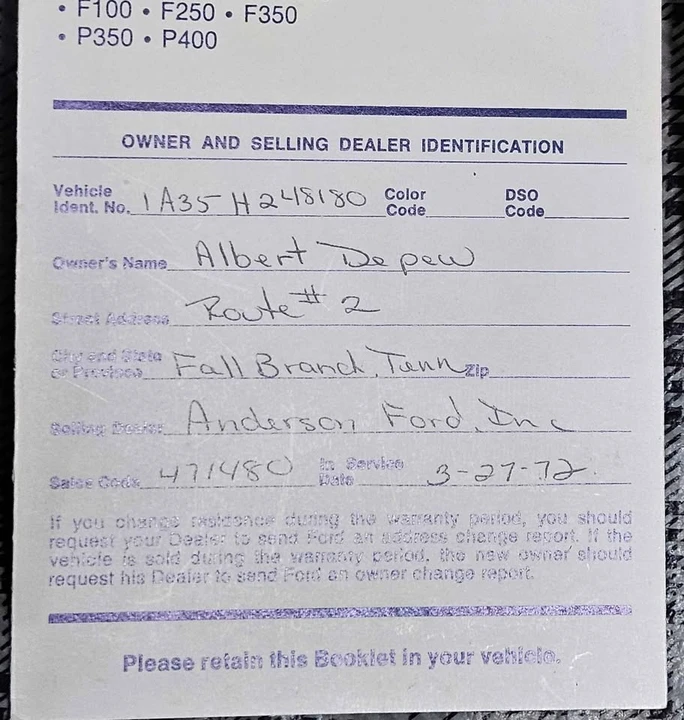 • F100 • F250 • F350
• P350 • P400
OWNER AND SELLING DEALER IDENTIFICATION
Vehicle Ident. No. 1A35H248180 Color Code DSO Code
Owner's Name Albert Depew
Street Address Route # 2
City and State or Province Fall Branch, Tenn Zip
Selling Dealer Anderson Ford, Inc
Sales Code 471480 In Service Date 3-27-72.
If you change residence during the warranty period, you should
request your Dealer to send Ford an address change report. If the
vehicle is sold during the warranty period, the new owner should
request his Dealer to send Ford an owner change report.
Please retain this Booklet in your vehicle.